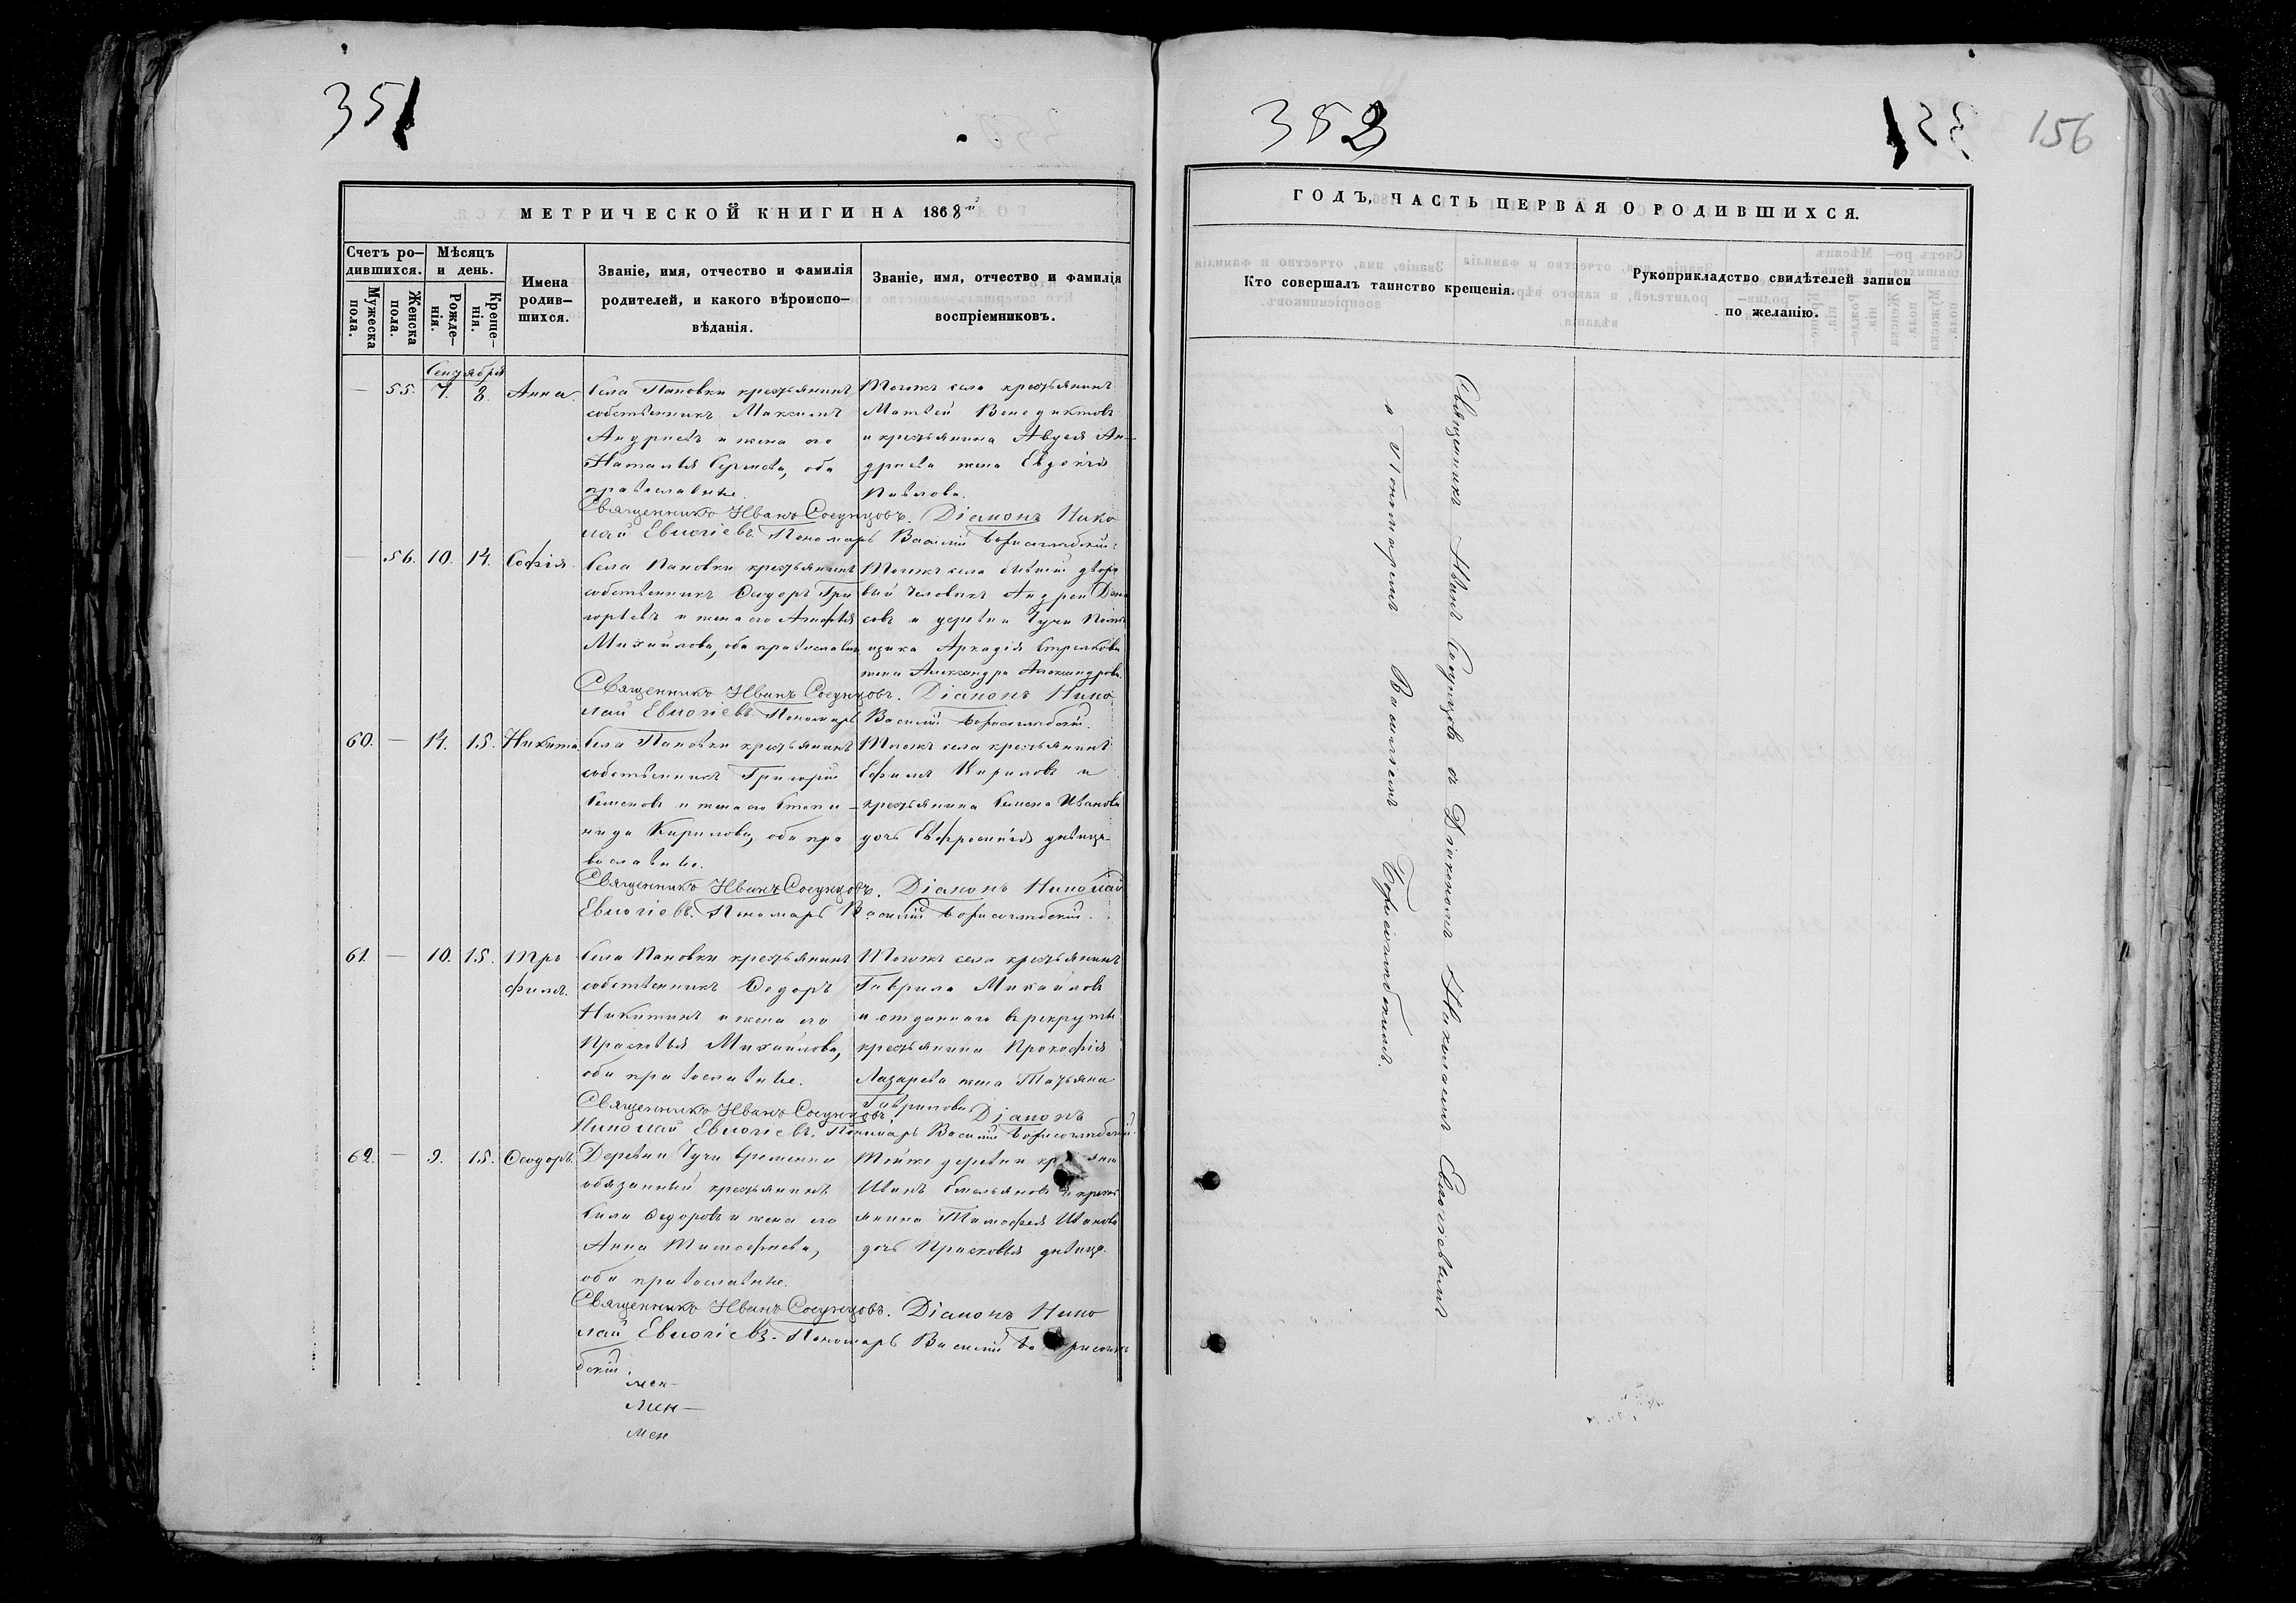 351
МЕТРИЧЕСКОЙ КНИГИ НА 1868й
Счетъ ро-
дившихся.
Мужеска
пола.
Женска
пола.
Мѣсяцъ
и день.
Рожде-
нія.
Креще-
нія.
Имена
родив-
шихся.
Званіе, имя, отчество и фамилія
родителей, и какого вѣроиспо-
вѣданія.
Званіе, имя, отчество и фамилія
воспріемниковъ.
Сентября
— 55. 7. 8. Анна.
Села Пановки крестьянинъ
собственникъ Максимъ
Андреевъ и жена его
Наталья Сергеева, оба
православные.
Тогожъ села крестьянинъ
Матвей Венедиктовъ
и крестьянина Авдея Ан-
дреева жена Евдокія
Павлова.
Священникъ Иванъ Соcунцовъ. Діаконъ Нико
лай Евлогіевъ. Пономарь Василій Борисоглебскій.
— 56. 10. 14. Софія.
Села Пановки крестьянинъ
собственникъ Ѳедоръ Гри
горьевъ и жена его Агафья
Михайлова, оба православн
Тогожъ села бывшій дворо
вый человекъ Андрей Дени
совъ и деревни Чучи помѣ
щика Аркадія Стрелкова
жена Александра Александрова.
Священникъ Иванъ Сосунцовъ. Діаконъ Нико
лай Евлогіевъ. Пономарь Василій Борисоглебскій.
60. — 14. 15. Никита.
Села Пановки крестьянинъ
собственникъ Григорій
Семеновъ и жена его Степа-
нида Кирилова, оба пра
вославные.
Тогожъ села крестьянинъ
Ефимъ Кириловъ и
крестьянина Семена Иванова
дочь Евфросинія девица.
Священникъ Иванъ Сосунцовъ. Діаконъ Николай
Евлогіевъ. Пономарь Василій Борисоглебскій.
61. — 10. 15. Тро
фимъ.
Села Пановки крестьянинъ
собственникъ Ѳедоръ
Никитинъ и жена его
Прасковья Михайлова,
оба православные.
Тогожъ села крестьянинъ
Гаврила Михайловъ
и отданнаго в рекруты
крестьянина Прокофія
Лазарева жена Татьяна
Гаврилова
Священникъ Иванъ Сосунцовъ. Діаконъ
Николай Евлогіевъ. Пономарь Василій Борисоглебскій.
62. — 9. 15. Ѳеодоръ.
Деревни Чучи временно
обязанный крестьянинъ
Сила Ѳедоровъ и жена его
Анна Тимофеева,
оба православные.
Тойже деревни кр янин
Иванъ Емельяновъ и кресть
янина Тимофея Иванова
дочь Прасковья девица.
Священникъ Иванъ Сосунцовъ. Діаконъ Нико
лай Евлогіевъ. Пономарь Василій Борисогле
бскій.
мен-
Мен-
мен
352
351
156
ГОДЪ, ЧАСТЬ ПЕРВАЯ О РОДИВШИХСЯ.
Кто совершалъ таинство крещенія.
Рукоприкладство свидѣтелей записи
по желанію.
Священникъ Иванъ Сосунцовъ съ Діакономъ Николаемъ Евлогіевымъ
и Пономаремъ Василіемъ Борисоглебскимъ.